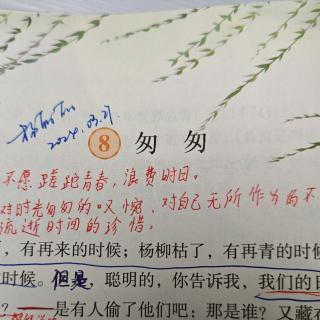 2024.03.21
8 匆匆
不愿蹉跎青春，浪费时日。
对时光匆匆的又惋，对自己无所作为的不
流逝时间的珍惜。
，有再来的时候；杨柳枯了，有再青的时候
时候。但是，聪明的，你告诉我，我们的日
？——是有人偷了他们吧：那是谁？又藏在